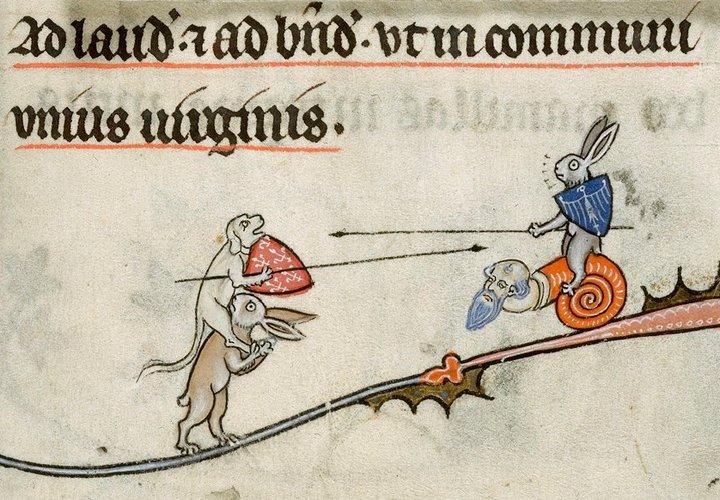 Ad laud'. ⁊ ad bñd'. vt in communi
vnius uirginis.